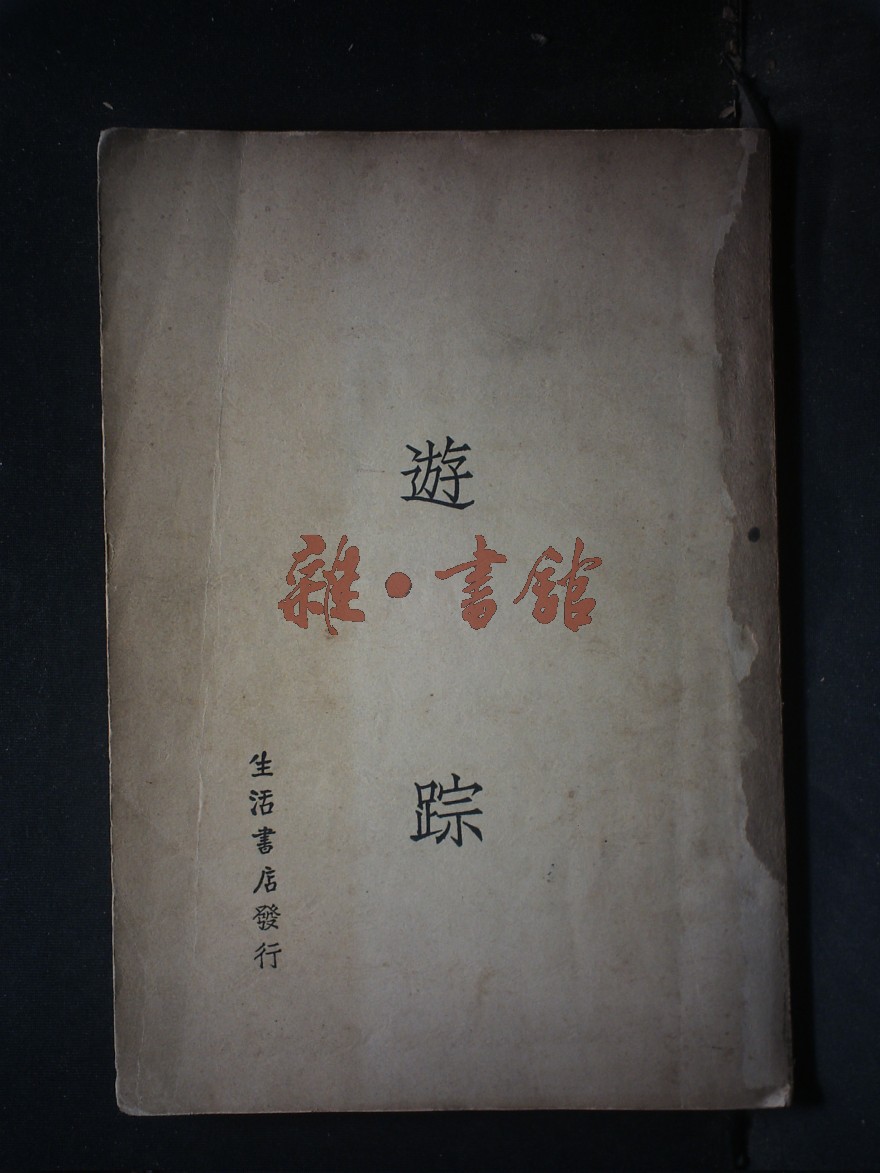 遊
雜·書館
踪
生活書店發行